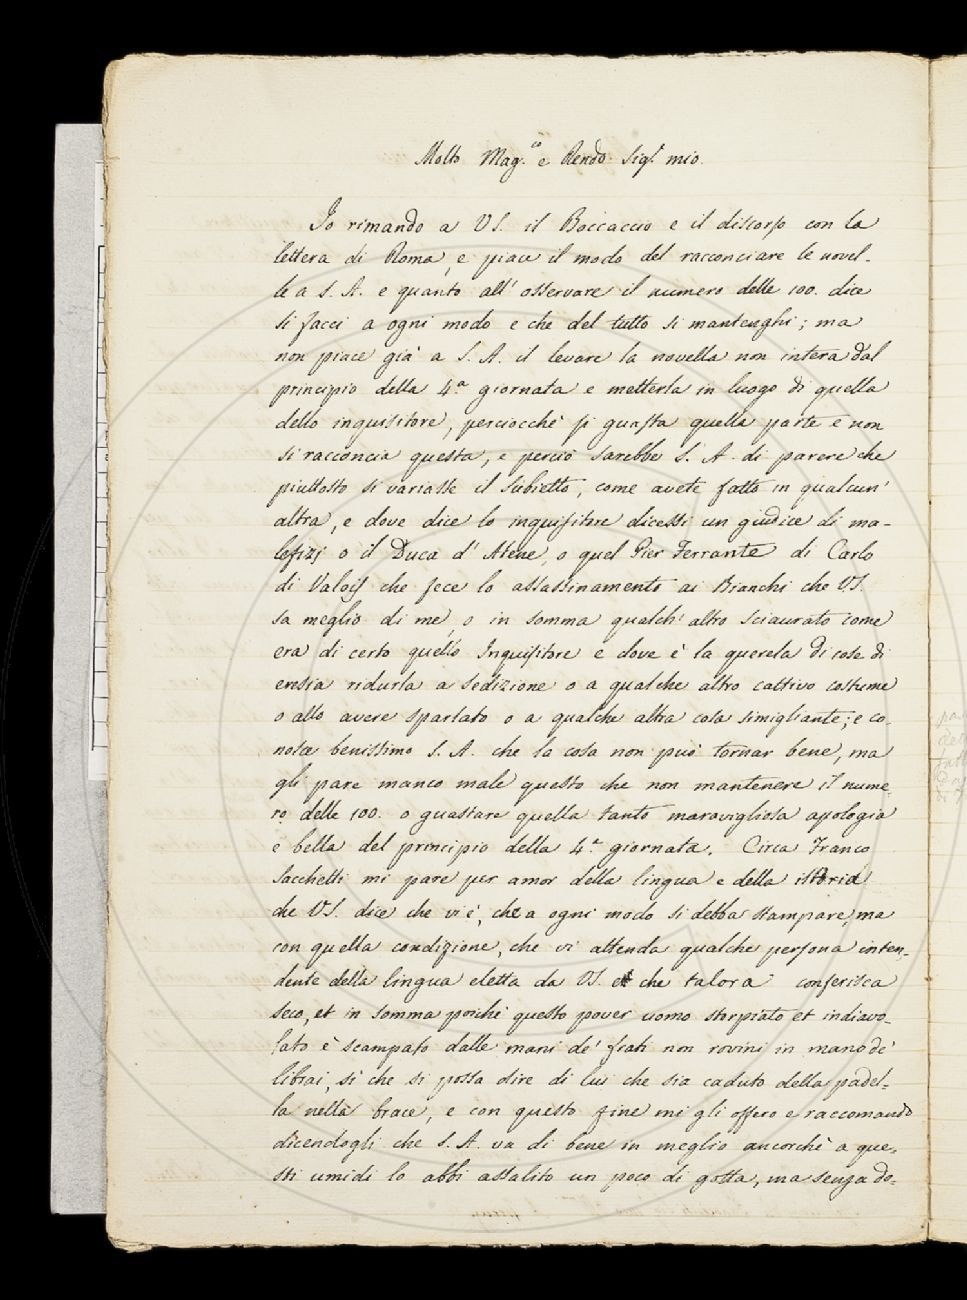 Molto Mag.co e Rendo Sig.r mio
Io rimando a VS. il Boccaccio e il discorso con la
lettera di Roma, e piace il modo del racconciare le novel-
le a S. A. e quanto all' osservare il numero delle 100. dice
si facci a ogni modo e che del tutto si mantenghi; ma
non piace già a S. A. il levare la novella non intera dal
principio della 4.a giornata e metterla in luogo di quella
dello inquisitore, perciocchè si guasta quella parte e non
si racconcia questa, e perciò sarebbe S. A. di parere che
piuttosto si variasse il subietto, come avete fatto in qualcun'
altra, e dove dice lo inquisitore dicessi un giudice di ma-
lefizj o il Duca d' Atene, o quel Pier Ferrante di Carlo
di Valois che fece lo assassinamento ai Bianchi che VS.
sa meglio di me, o in somma qualch' altro sciaurato come
era di certo quello Inquisitore e dove è la querela di cose di
eresia ridurla a sedizione o a qualche altro cattivo costume
o allo avere sparlato o a qualche altra cosa simigliante; e co-
nosce benissimo S. A. che la cosa non può tornar bene, ma
gli pare manco male questo che non mantenere il nume-
ro delle 100. o guastare quella tanto maravigliosa apologia
e bella del principio della 4.a giornata. Circa Franco
Sacchetti mi pare per amor della lingua e della istoria
che VS. dice che vi è, che a ogni modo si debba stampare, ma
con quella condizione, che vi attenda qualche persona inten-
dente della lingua eletta da VS. et che talora conferisca
seco, et in somma poichè questo pover uomo storpiato et indiavo-
lato è scampato dalle mani de' frati non rovini in mano de'
librai, sì che si possa dire di lui che sia caduto della padel-
la nella brace, e con questo fine mi gli offero e raccomando
dicendogli che S. A. va di bene in meglio ancorchè a que-
sti umidi lo abbi assalito un poco di gotta, ma senza do-